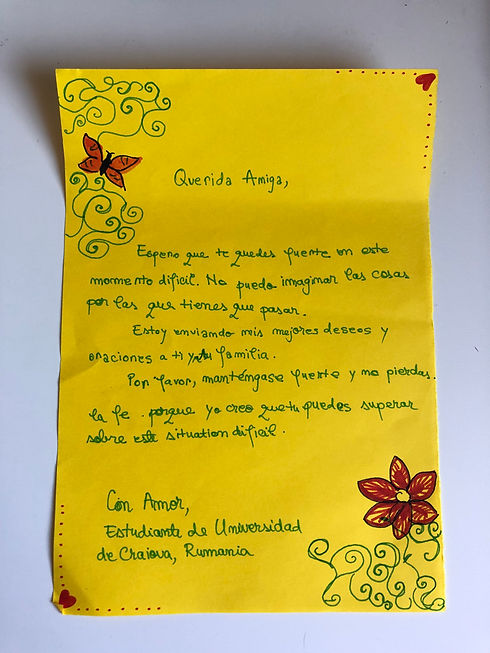 Querida Amiga,
Espero que te quedes fuerte en este
momento dificil. No puedo imaginar las cosas
por las que tienes que pasar.
Estoy enviando mis mejores deseos y
oraciones a ti y tu familia.
Por favor, manténgase fuerte y no pierdas
la fe. porque yo creo que tu puedes superar
sobre este situation dificil.
Con Amor,
Estudiante de Universidad
de Craiova, Rumania